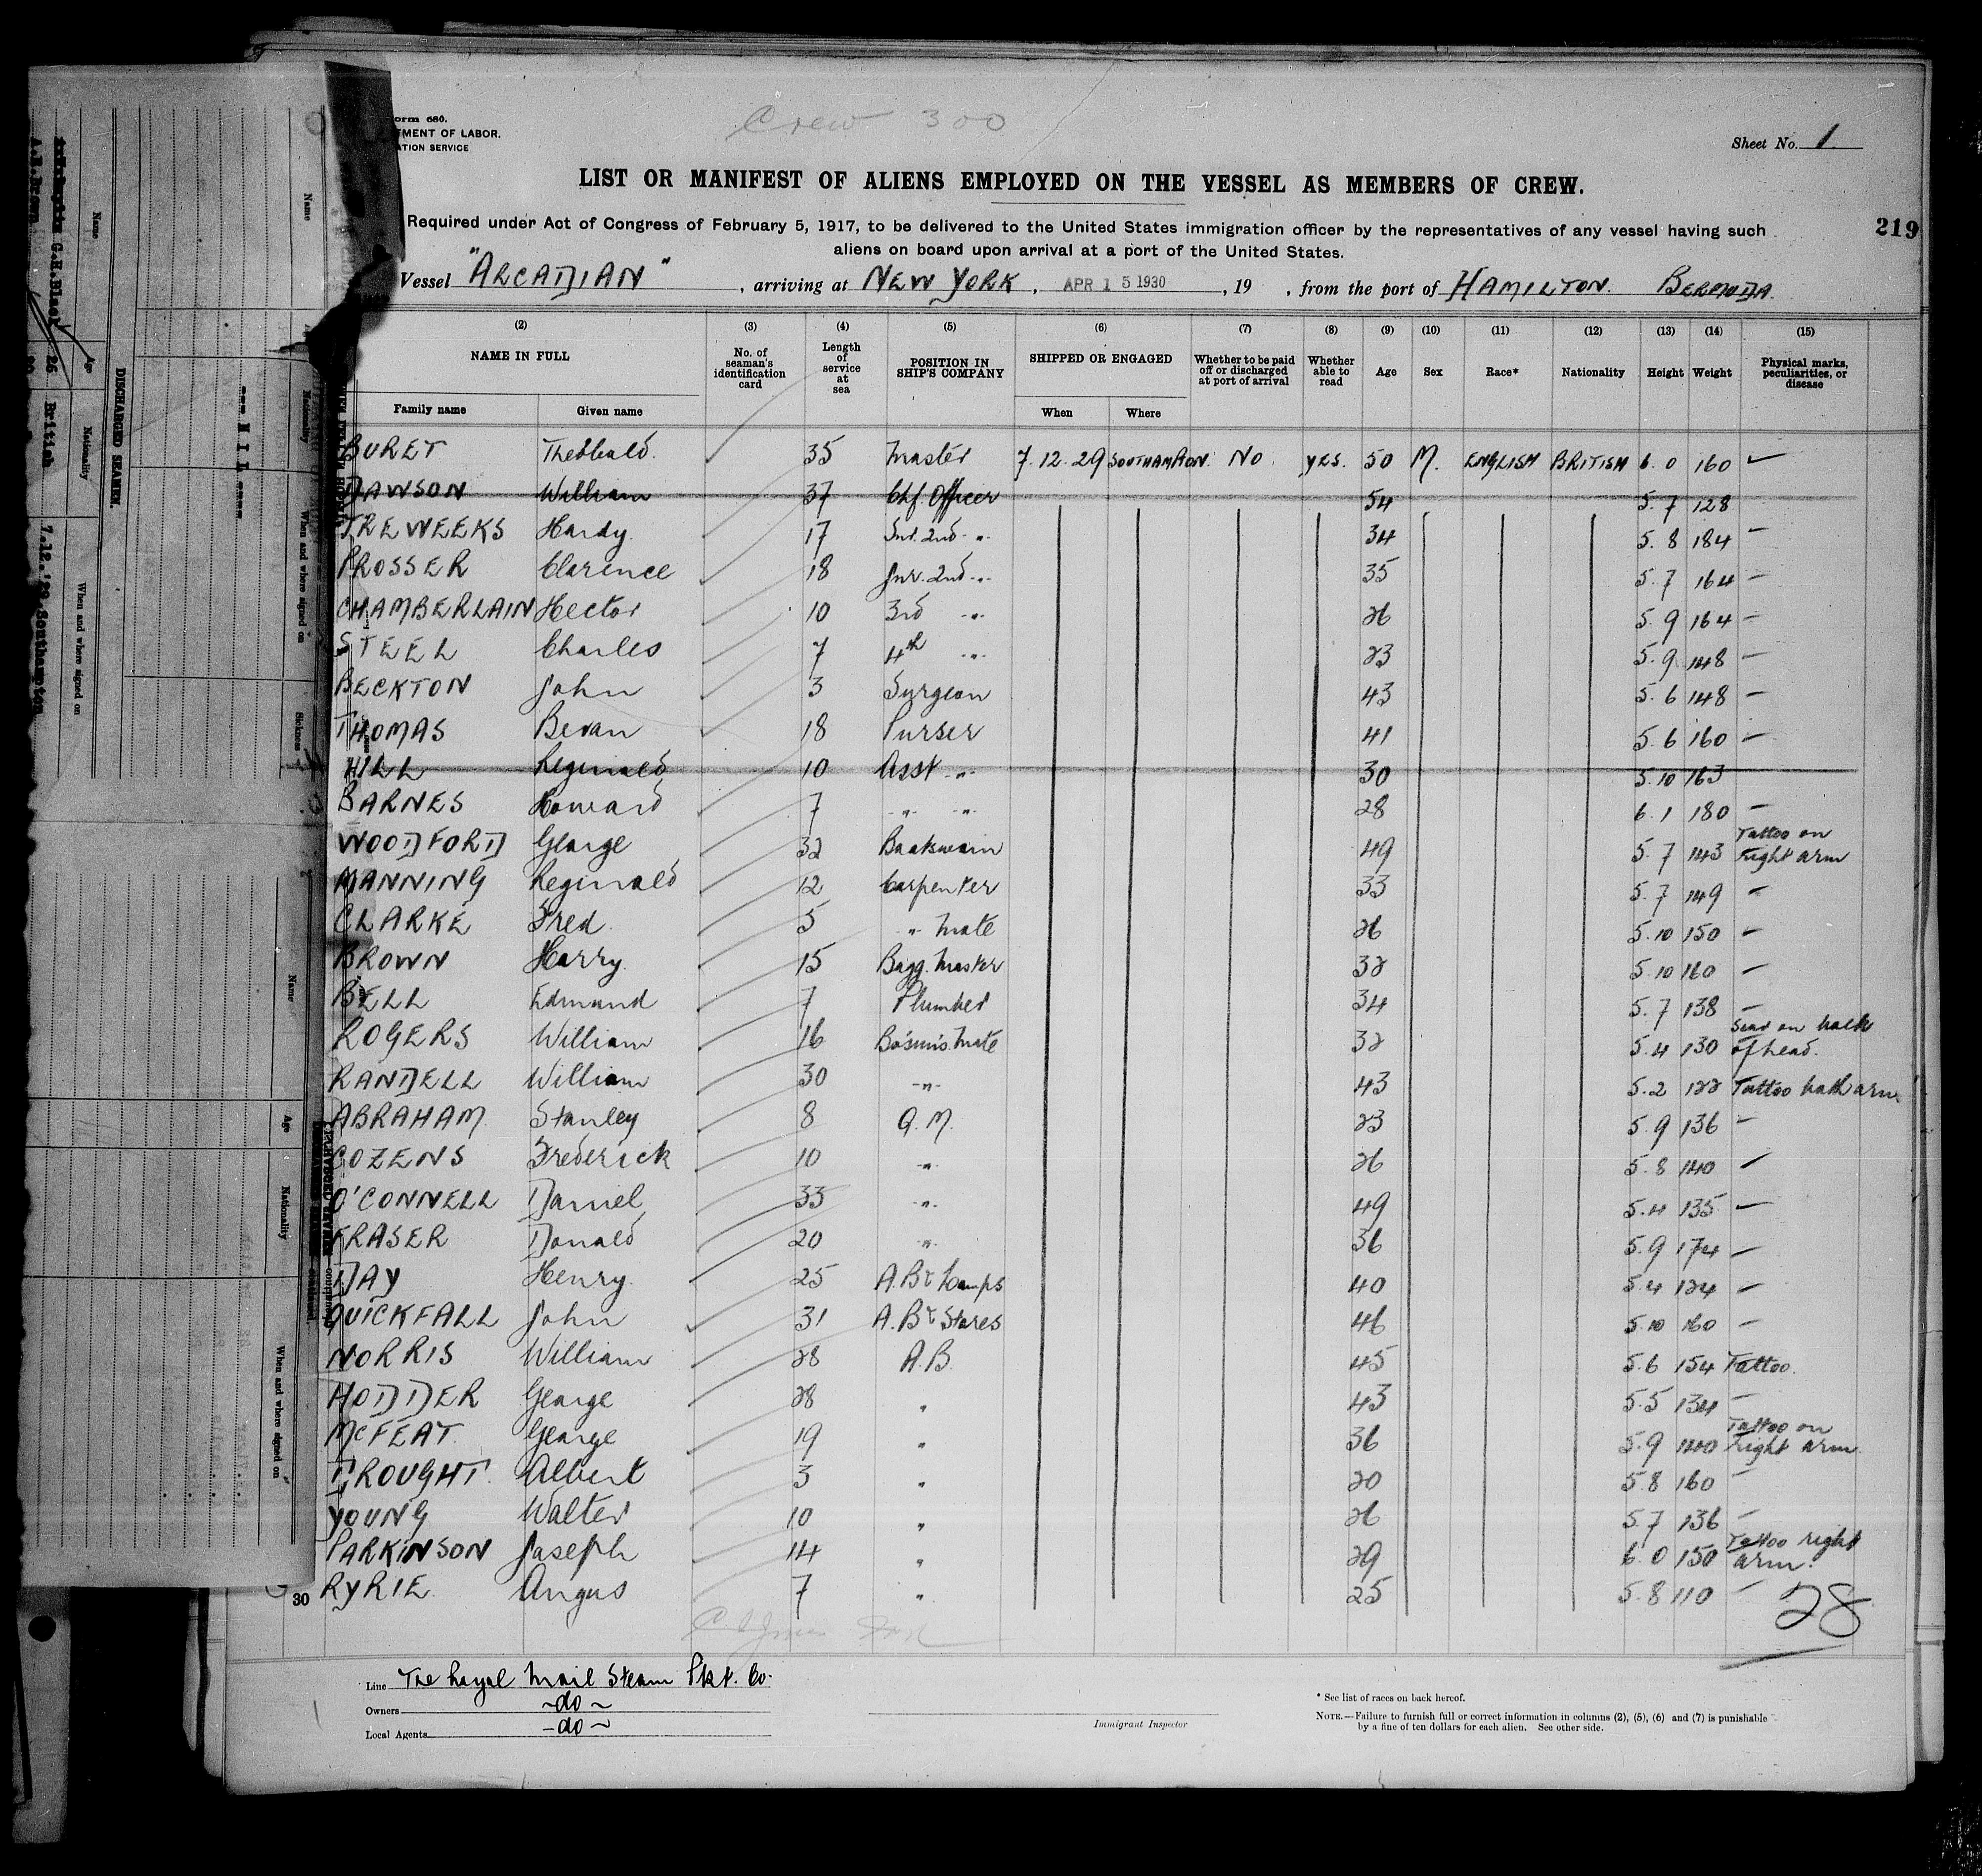 Crew 300
orm 680.
TMENT OF LABOR.
ATION SERVICE
Sheet No. 1
LIST OR MANIFEST OF ALIENS EMPLOYED ON THE VESSEL AS MEMBERS OF CREW.
Required under Act of Congress of February 5, 1917, to be delivered to the United States immigration officer by the representatives of any vessel having such
aliens on board upon arrival at a port of the United States.
219
Vessel "ARCADIAN", arriving at NEW YORK, APR 15 1930, 19 , from the port of HAMILTON. BERMUDA.
(2) (3) (4) (5) (6) (7) (8) (9) (10) (11) (12) (13) (14) (15)
NAME IN FULL No. of seaman's identification card Length of service at sea POSITION IN SHIP'S COMPANY SHIPPED OR ENGAGED Whether to be paid off or discharged at port of arrival Whether able to read Age Sex Race* Nationality Height Weight Physical marks, peculiarities, or disease
Family name Given name When Where
BURET Theobald. 35 Master 7.12.29 SOUTHAMPTON. NO. YES. 50 M. ENGLISH BRITISH 6.0 160
DAWSON William 37 Chf. Officer 54 5.7 128
TREWEEKS Hardy. 17 Snr. 2nd -"- 34 5.8 184 -
PROSSER Clarence 18 Jnr. 2nd -"- 35 5.7 164 -
CHAMBERLAIN Hector 10 3rd -"- 26 5.9 164 -
STEEL Charles 7 4th -"- 23 5.9 148 -
BECKTON John 3 Surgeon 43 5.6 148 -
THOMAS Bevan 18 Purser 41 5.6 160 -
HILL Reginald 10 Asst -"- 30 5.10 163
BARNES Howard 7 -"- -"- 28 6.1 180 -
WOODFORD George 32 Boatswain 49 5.7 143 Tattoo on right arm
MANNING Reginald 12 Carpenter 33 5.7 149 -
CLARKE Fred. 5 -"- Mate 26 5.10 150 -
BROWN Harry. 15 Bagg. Master 32 5.10 160 -
BELL Edmund 7 Plumber 34 5.7 138 -
ROGERS William 16 Bo'sun's. Mate 32 5.4 130 Scar on back of head.
RANDELL William 30 -"- 43 5.2 122 Tattoo both arm
ABRAHAM. Stanley 8 Q.M. 23 5.9 136 -
COZENS Frederick 10 -"- 26 5.8 140 -
O'CONNELL Daniel 33 -"- 49 5.4 135 -
FRASER Donald 20 -"- 36 5.9 174 -
DAY Henry. 25 A.B & Lamps 40 5.4 124 -
QUICKFALL John 31 A.B & Stores 46 5.10 160 -
NORRIS William 28 A.B. 45 5.6 154 Tattoo.
HODDER George 28 " 43 5.5 134 -
McFEAT. George 19 " 36 5.9 140 Tattoo on right arm.
DROUGHT. Albert 3 " 20 5.8 160 -
YOUNG Walter 10 " 26 5.7 136 -
PARKINSON Joseph 14 " 29 6.0 150 Tattoo right arm.
30 RYRIE. Angus 7 " 25 5.8 110 -
28
Line The Royal Mail Steam Pkt. Co.
Owners ~do~
Local Agents -do~
Immigrant Inspector
* See list of races on back hereof.
NOTE.—Failure to furnish full or correct information in columns (2), (5), (6) and (7) is punishable
by a fine of ten dollars for each alien. See other side.
DISCHARGED SEAMEN.
Name Age Nationality When and where signed on
G.E.Black 26 British 7.12.'29 Southampton
A.E.Brown
Name Nationality When and where signed on Sickness
N I L
Name Age Nationality When and where signed on